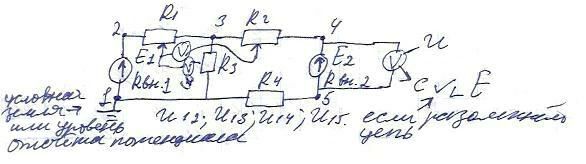 R1
R2
2
3
4
E1
V
V
R3
E2
V
U
Rвн.1
Rвн.2
R4
C V L E
1
5
условная
земля →
или уровень
отсчёта потенциала
U12; U13; U14; U15.
если разомкнуть
цепь